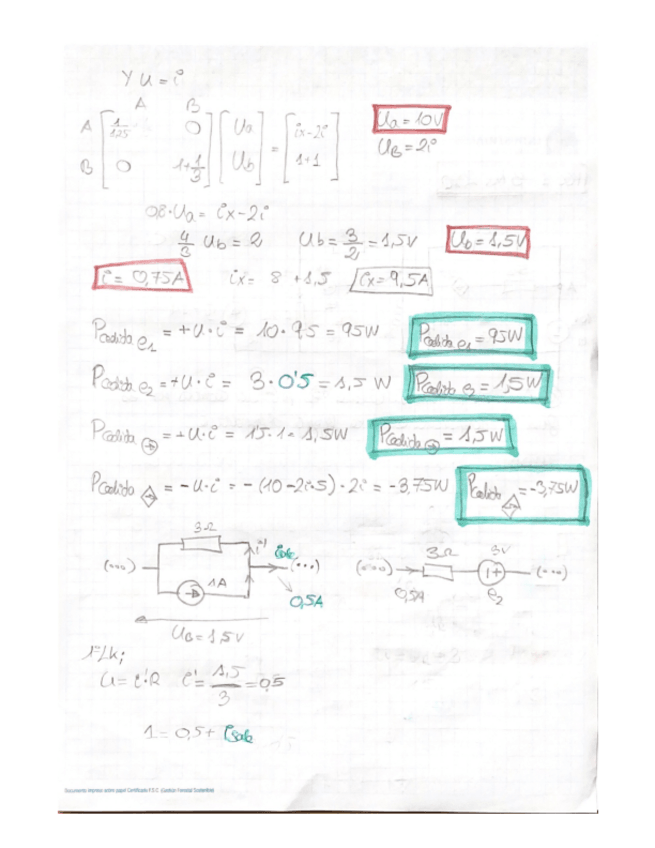 Y U = i
A B
A [ 1/1,25 0 ] [ Ua ] = [ ix-2i ]
B [ 0 1+1/3 ] [ Ub ] [ 1+1 ]
Ua = 10V
UB = 2i
0,8·Ua = ix-2i
4/3 Ub = 2 Ub = 3/2 = 1,5V Ub = 1,5V
i = 0,75A ix = 8 + 1,5 ix = 9,5A
Pcedida e1 = +U·i = 10·9,5 = 95W Pcedida e1 = 95W
Pcedida e2 = +U·i = 3·0'5 = 1,5 W Pcedida e2 = 1,5W
Pcedida = +U·i = 1,5·1 = 1,5W Pcedida = 1,5W
Pcedida = -U·i = -(10-2i·5)·2i = -3,75W Pcedida = -3,75W
3Ω i' isale 3Ω 3V
(...) 1A (...) (...) (...)
0,5A 0,5A e2
UB = 1,5V
1ªLk;
U = i'·R i' = 1,5/3 = 0,5
1 = 0,5 + isale
Documento impreso sobre papel Certificado F.S.C. (Gestión Forestal Sostenible)